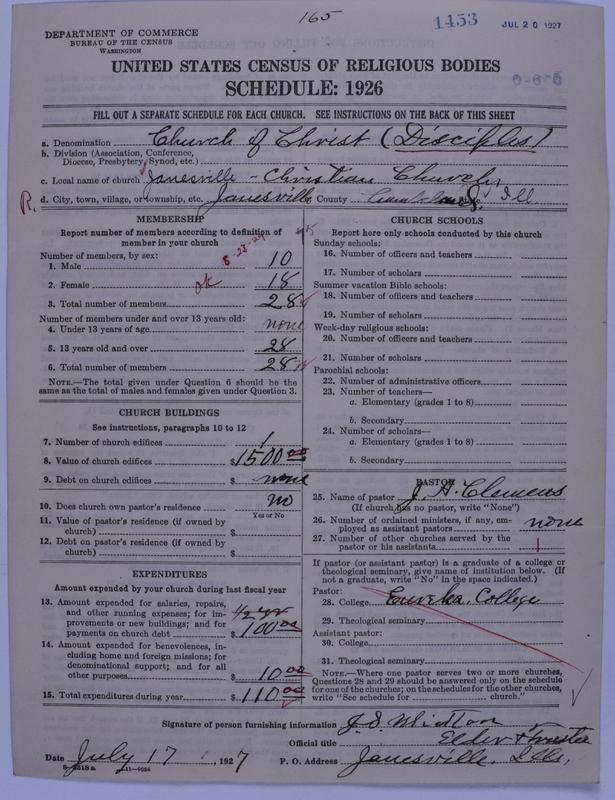 165
1453 JUL 20 1927
DEPARTMENT OF COMMERCE
BUREAU OF THE CENSUS
WASHINGTON
UNITED STATES CENSUS OF RELIGIOUS BODIES
SCHEDULE: 1926
FILL OUT A SEPARATE SCHEDULE FOR EACH CHURCH. SEE INSTRUCTIONS ON THE BACK OF THIS SHEET
a. Denomination Church of Christ (Disciples)
b. Division (Association, Conference,
Diocese, Presbytery, Synod, etc.)
c. Local name of church Janesville - Christian Church,
R. d. City, town, village, or township, etc. Janesville County Ill.
MEMBERSHIP
Report number of members according to definition of
member in your church
Number of members, by sex:
1. Male 10
2. Female 18
ok
3. Total number of members 28
Number of members under and over 13 years old:
4. Under 13 years of age none
5. 13 years old and over 28
6. Total number of members 28
NOTE.—The total given under Question 6 should be the
same as the total of males and females given under Question 3.
CHURCH BUILDINGS
See instructions, paragraphs 10 to 12
7. Number of church edifices 1
8. Value of church edifices $1500.00
9. Debt on church edifices $ none
10. Does church own pastor's residence? no
Yes or No
11. Value of pastor's residence (if owned by
church) $
12. Debt on pastor's residence (if owned by
church) $
EXPENDITURES
Amount expended by your church during last fiscal year
13. Amount expended for salaries, repairs,
and other running expenses; for im- 1/2 yr
provements or new buildings; and for
payments on church debt $ 100.00
14. Amount expended for benevolences, in-
cluding home and foreign missions; for
denominational support; and for all
other purposes $ 10.00
15. Total expenditures during year $ 110.00
CHURCH SCHOOLS
Report here only schools conducted by this church
Sunday schools:
16. Number of officers and teachers
17. Number of scholars
Summer vacation Bible schools:
18. Number of officers and teachers
19. Number of scholars
Week-day religious schools:
20. Number of officers and teachers
21. Number of scholars
Parochial schools:
22. Number of administrative officers
23. Number of teachers—
a. Elementary (grades 1 to 8)
b. Secondary
24. Number of scholars—
a. Elementary (grades 1 to 8)
b. Secondary
PASTOR
25. Name of pastor J. H. Clemens
(If church has no pastor, write "None")
26. Number of ordained ministers, if any, em-
ployed as assistant pastors none
27. Number of other churches served by the
pastor or his assistants 1
If pastor (or assistant pastor) is a graduate of a college or
theological seminary, give name of institution below. (If
not a graduate, write "No" in the space indicated.)
Pastor:
28. College Eureka College
29. Theological seminary
Assistant pastor:
30. College
31. Theological seminary
NOTE.—Where one pastor serves two or more churches,
Questions 28 and 29 should be answered only on the schedule
for one of the churches; on the schedules for the other churches,
write "See schedule for church."
Signature of person furnishing information J. S.
Official title Elder & Trustee
Date July 17, 1927 P. O. Address Janesville, Ills,
11—9054